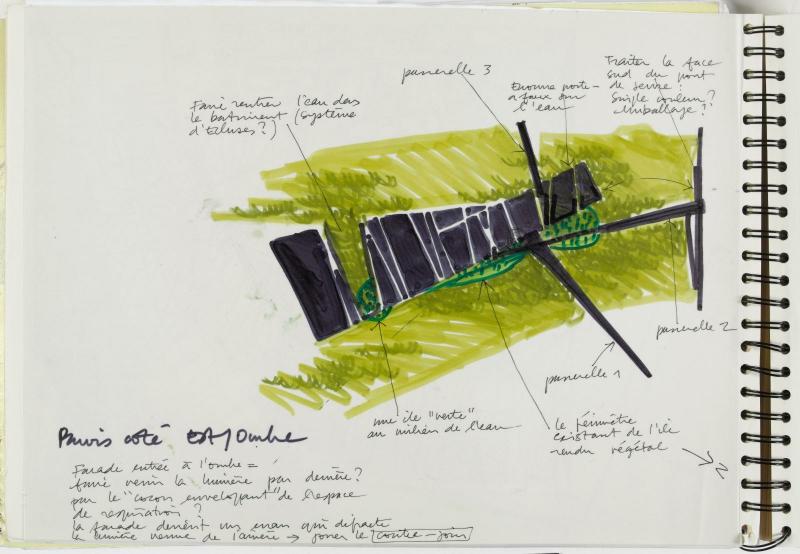 passerelle 3
Enorme porte-
à faux sur
l'eau
Traiter la face
sud du pont
de service :
Simple couleur ?
emballage ?
Faire rentrer l'eau dans
le batiment (système
d'Ecluses ?)
passerelle 2
passerelle 1
une ile "verte"
au milieu de l'eau
le périmètre
existant de l'ile
rendu végétal
N
Parvis coté EST/Ombre
Facade entrée à l'ombre =
faire venir la lumière par derrière ?
par le "cocon enveloppant" de l'espace
de respiration ?
la facade devient un écran qui diffracte
la lumière venue de l'arrière → jouer le contre-jour